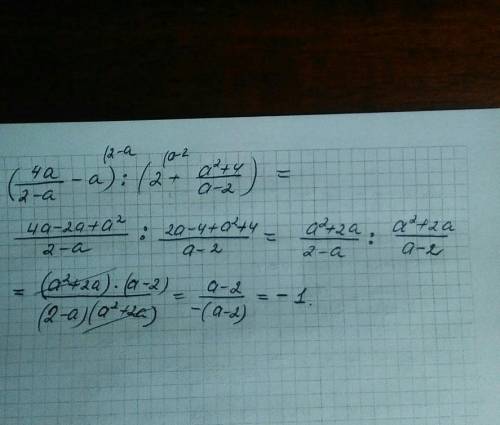 (4a/(2-a) - a)^(2-a : (2 + (a²+4)/(a-2))^(a-2 =
(4a-2a+a²)/(2-a) : (2a-4+a²+4)/(a-2) = (a²+2a)/(2-a) : (a²+2a)/(a-2)
= ((a²+2a)·(a-2))/((2-a)(a²+2a)) = (a-2)/(-(a-2)) = -1.